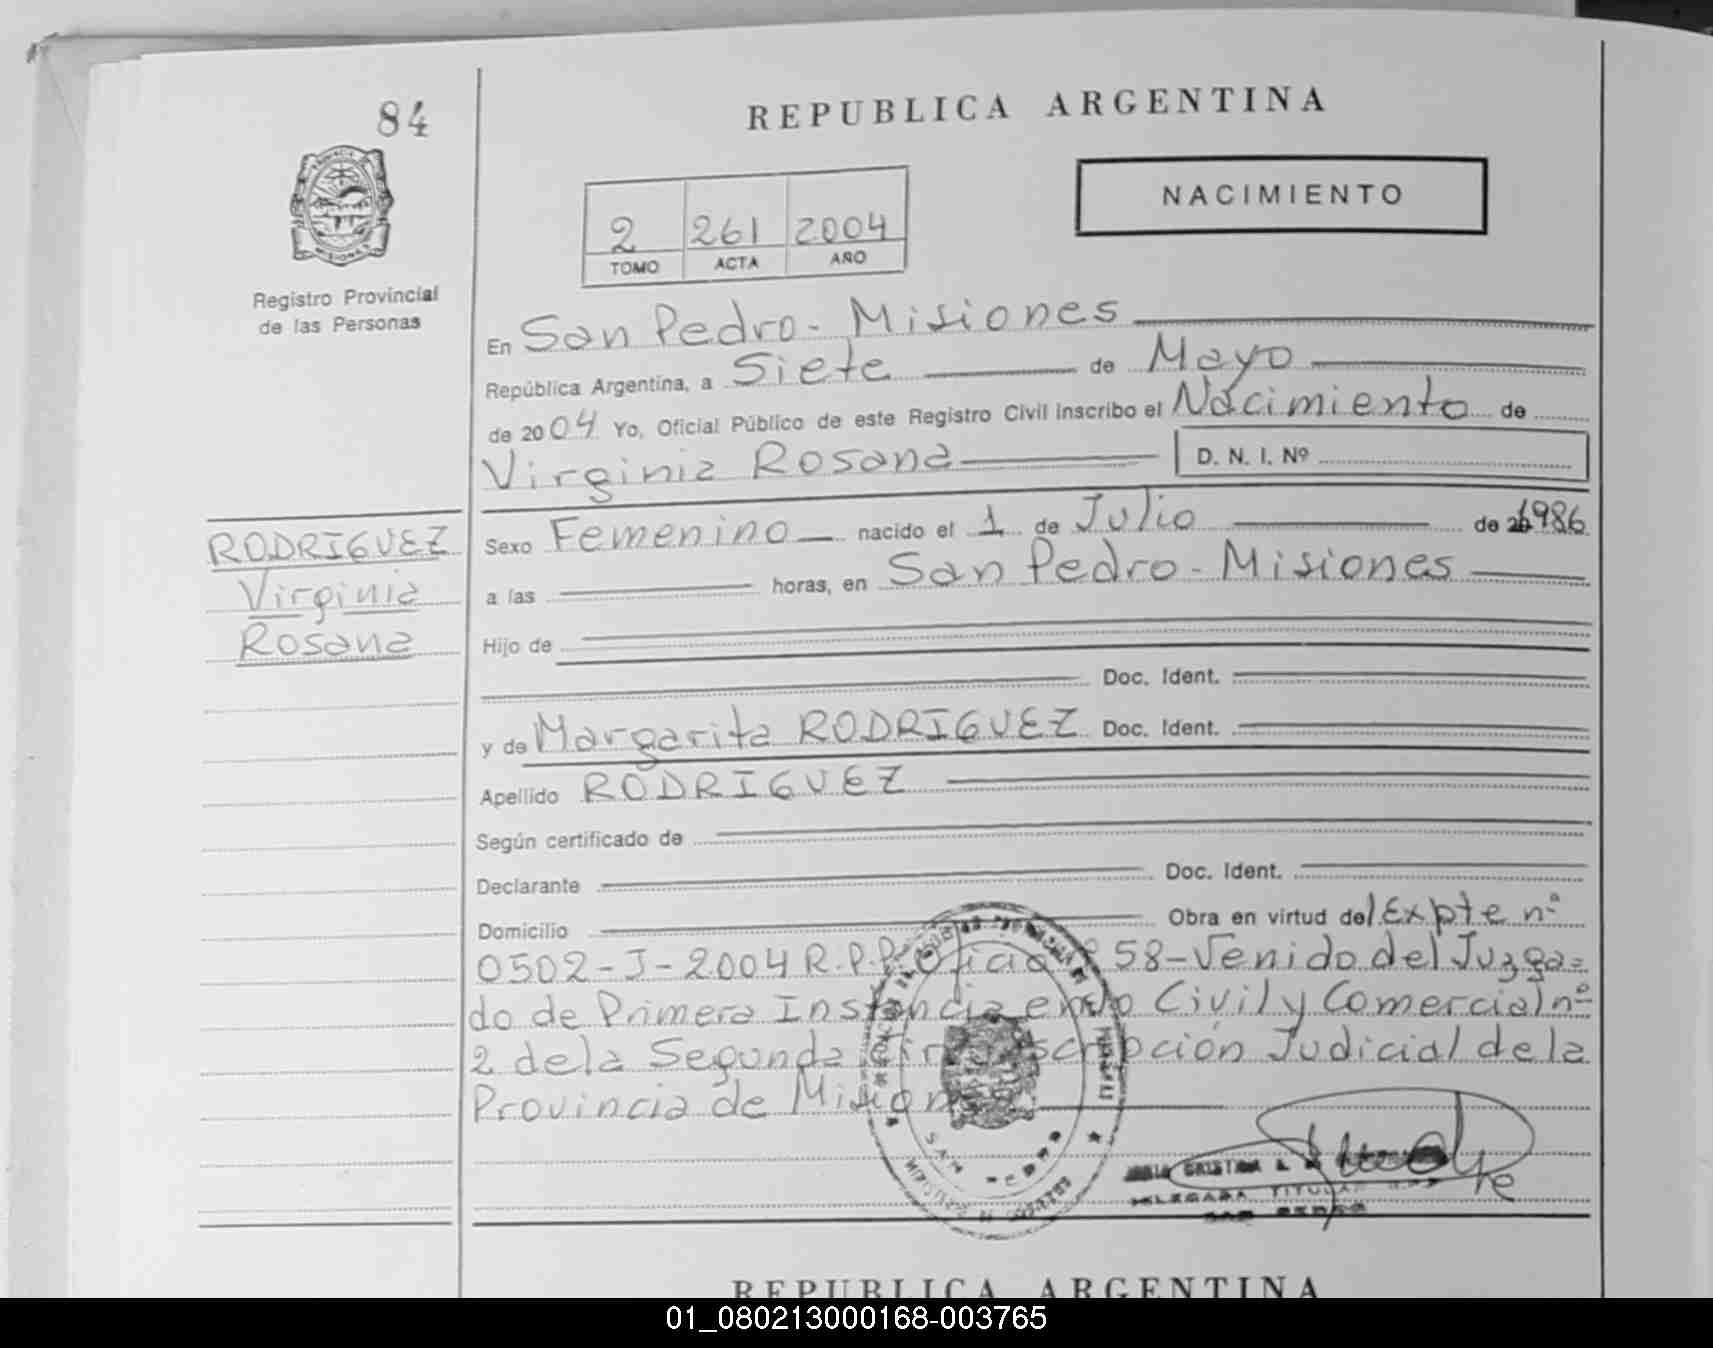 84
REPUBLICA ARGENTINA
NACIMIENTO
2 261 2004
TOMO ACTA AÑO
Registro Provincial
de las Personas
En San Pedro - Misiones
República Argentina, a Siete de Mayo
de 2004 Yo, Oficial Público de este Registro Civil inscribo el Nacimiento de
Virginia Rosana D. N. I. Nº
RODRIGUEZ
Virginia
Rosana
Sexo Femenino nacido el 1 de Julio de 1986
a las horas, en San Pedro - Misiones
Hijo de
Doc. Ident.
y de Margarita RODRIGUEZ Doc. Ident.
Apellido RODRIGUEZ
Según certificado de
Declarante Doc. Ident.
Domicilio Obra en virtud del Expte nº
0502-J-2004 R.P.P. Oficio 58-Venido del Juzga=
do de Primera Instancia en lo Civil y Comercial nº
2 de la Segunda Circunscripción Judicial de la
Provincia de Misiones
SAN PEDRO
CRISTINA
DELEGADA TITULAR
SAN PEDRO
REPUBLICA ARGENTINA
01_080213000168-003765